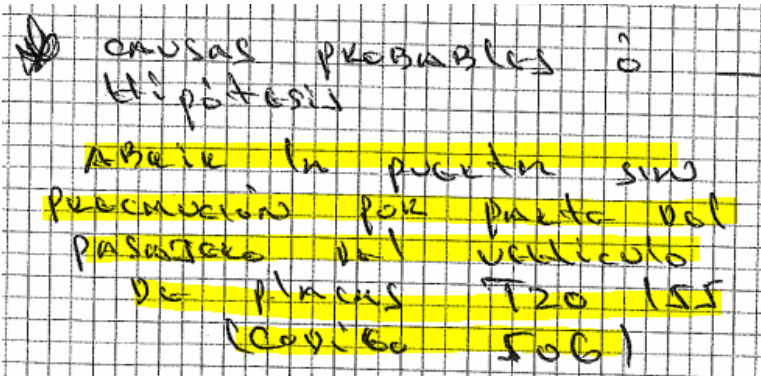 CAUSAS PROBABLES ó
Hipótesis
ABRIR la puerta sin
PRECAUCIÓN POR PARTE DEL
PASAJERO DEL VEHICULO
DE PLACAS TZO 155
(CODIGO 506)